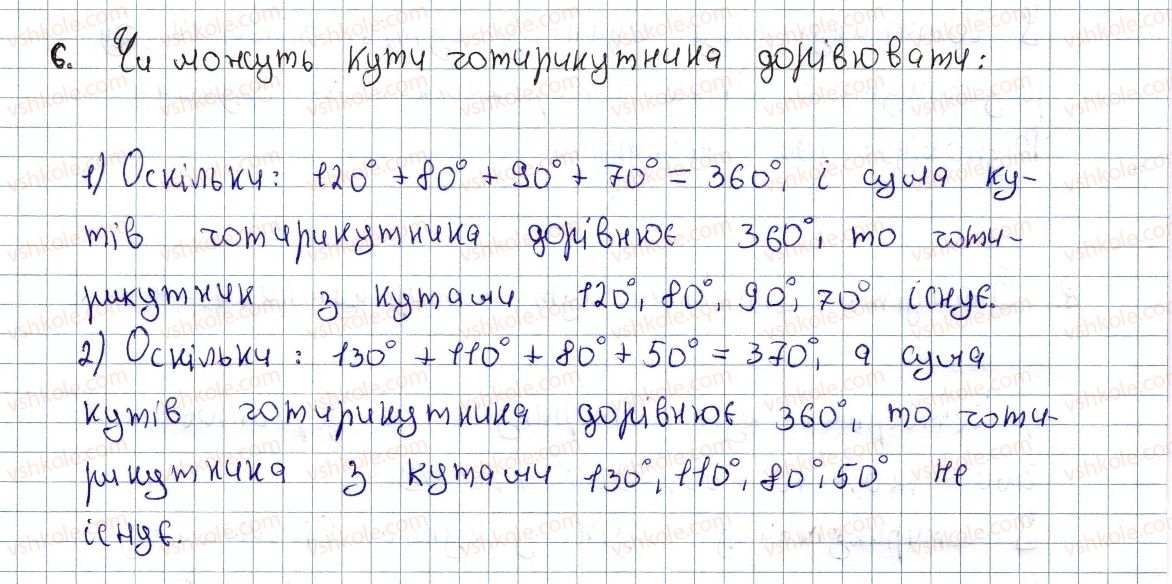 6. Чи можуть кути чотирикутника дорівювати:
1) Оскільки: 120° + 80° + 90° + 70° = 360°, і сума ку-
тів чотирикутника дорівнює 360°, то чоти-
рикутник з кутами 120°, 80°, 90°, 70° існує.
2) Оскільки: 130° + 110° + 80° + 50° = 370°, а сума
кутів чотирикутника дорівнює 360°, то чоти-
рикутника з кутами 130°, 110°, 80°, 50° не
існує.